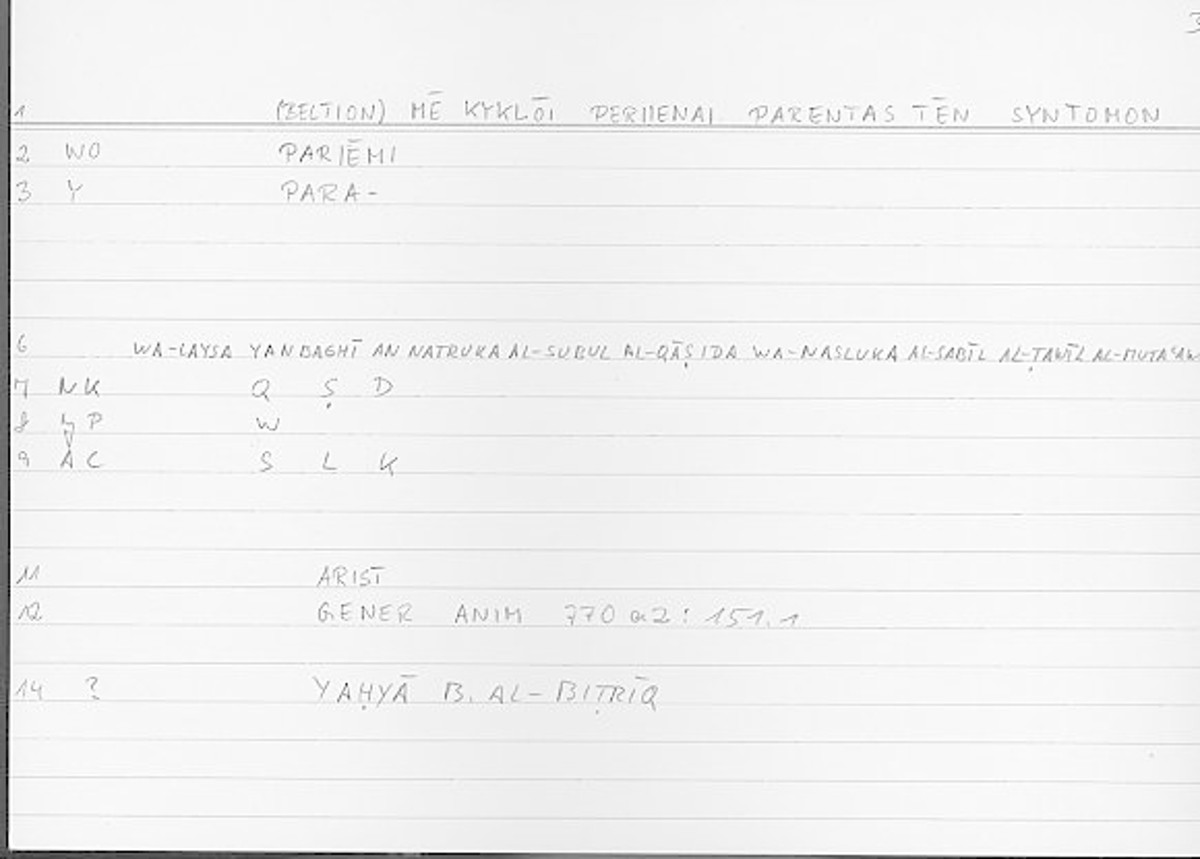 3
1 (BELTION) MĒ KYKLŌI PERIIENAI PARENTAS TĒN SYNTOMON
2 WO PARIĒMI
3 Y PARA-
6 WA-LAYSA YANBAGHĪ AN NATRUKA AL-SUBUL AL-QĀṢIDA WA-NASLUKA AL-SABĪL AL-ṬAWĪL AL-MUTAʿAW
7 NK Q Ṣ D
8 P W
9 AC S L K
11 ARIST
12 GENER ANIM 770 a2: 151.1
14 ? YAḤYĀ B. AL-BIṬRĪQ